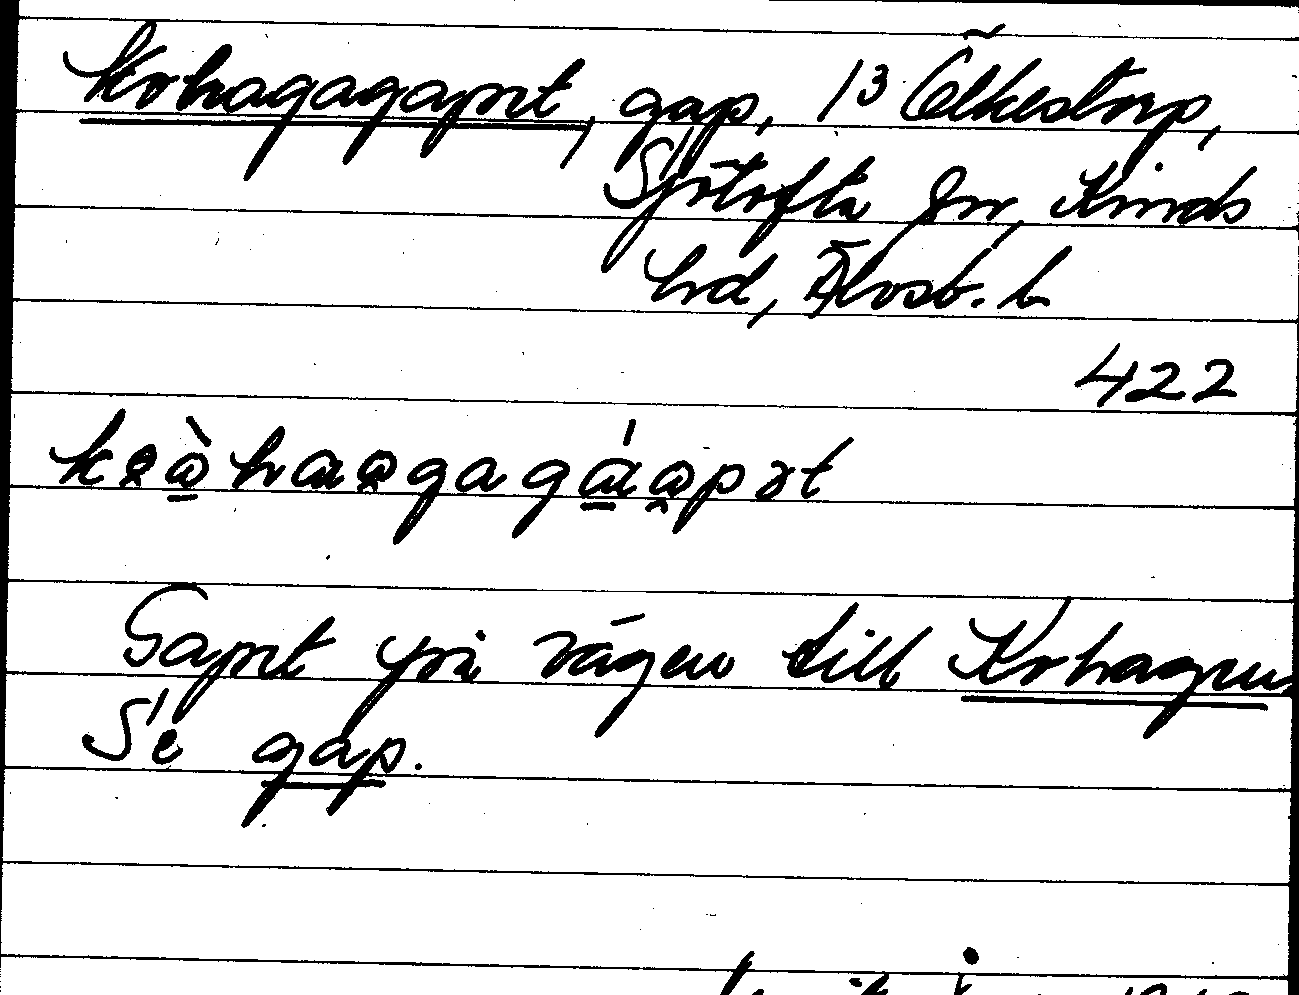 Kohagagapet, gap, 13 Ölkestorp,
Sjötofta sn, Kinds
hd, Älvsb. l.
422
Gapet på vägen till Kohagen.
Se gap.